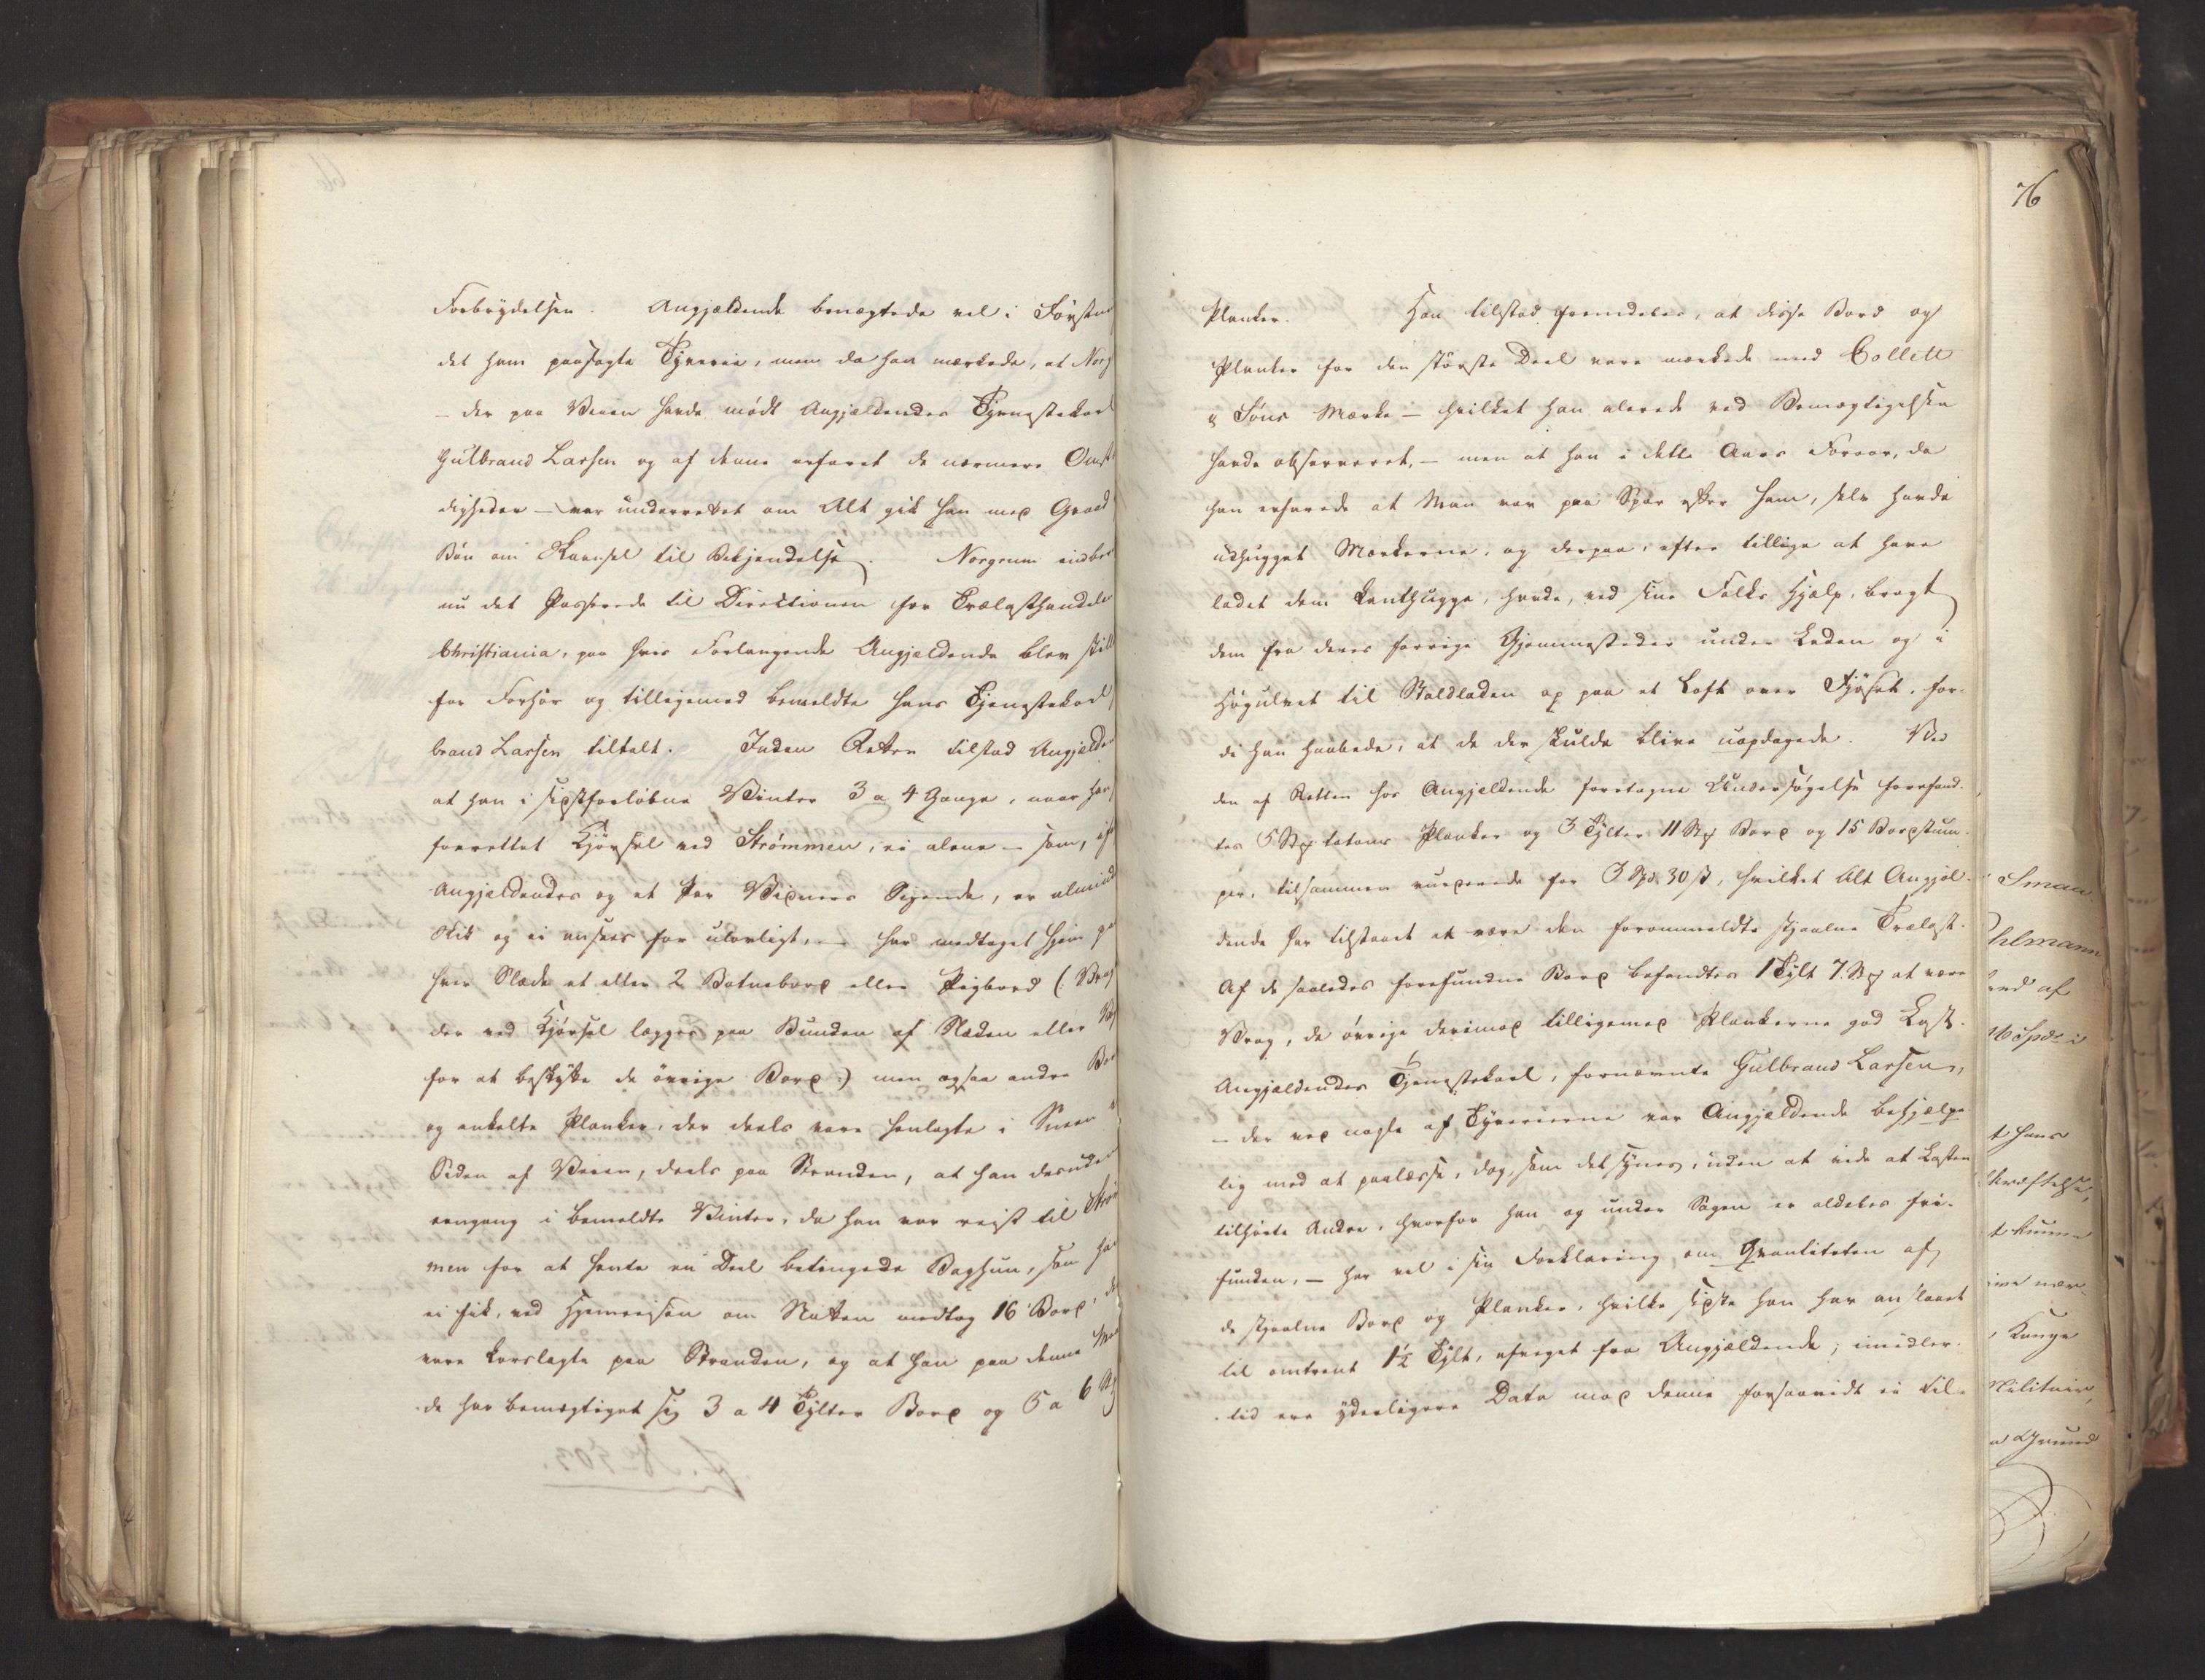 Forbrydelsen. Angjældende benægtede vel i Førstni
det ham paasagte Tyverie, men da han mærkede, at Norg
– der paa Veien havde mødt Angjældendes Tjenestekarl
Gulbrand Larsen og af denne erfaret de nærmere Omst
digheder – var underrettet om Alt gik han med Graad
Bøn om Skaansel til Bekjendelse. Norgrum indbe
nu det Passerede til Directionen for Trælasthandele
Christiania, paa hvis Forlangende Angjeldende blev still
for Forhør og tilligemed bemeldte hans Tjenestekarl
brand Larsen tiltalt. Inden Retten tilstod Angjælde
at han i sidstforløbne Vinter 3 a 4 Gange, naar han
forrettet Kjørsel ved Strømmen, ei alene – som, eft
Angjældendes og et Par Vidners Sigende, er almind
Skik og ei ansees for ulovligt, – har medtaget hjem pa
hver Slæde et eller 2 Botnebord eller Rigbord (: Vrag
der ved Kjørsel lægges paa Bunden af Slæden eller
for at beskytte de øvrige Bord :) men ogsaa andre Bor
og enkelte Planker, der deels vare henlagte i Sneen
Siden af Veien, deels paa Stranden, at han desuden
eengang i bemeldte Vinter, da han var reist til Strøm
men for at hente en Deel betingede Baghun, som han
ei fik, ved Hjemreisen om Natten medtog 16 Bord, de
vare korslagte paa Stranden, og at han paa denne Maa
de har bemægtiget sig 3 a 4 Tylter Bord og 5 a 6 St
Planker. Han tilstod fremdeles, at disse Bord og
Planker for den største Deel vare mærkede med Collett
& Søns Mærke – hvilket han alerede ved Bemægtigelsen
havde observeret, – men at han i dette Aars Foraar, da
han erfarede at Man var paa Spor efter ham, selv havde
udhugget Mærkerne, og derpaa, efter tillige at have
ladet dem kanthugge, havde, ved sine Folks Hjælp, bragt
dem fra deres forrige Gjemmesteder under Laden og i
Høgulvet til Staldladen op paa et Loft over Fjøset, for-
di han haabede, at de der skulde blive uopdagede. Ved
den af Retten hos Angjeldende foretagne Undersøgelse forefand-
tes 5 Stk totoms Planker og 3 Tylter 11 Stk Bord og 15 Bordstum-
per, tilsammen vurderede for 3 Spd. 30 ß, hvilket Alt Angjæl-
dende har tilstaaet at være den forommeldte stjaalne Trælast.
Af de saaledes forefundne Bord befandtes 1 Tylt 7 Stk at være
Vrag, de øvrige derimod tilligemed Plankerne god Last.
Angjældendes Tjenestekarl, fornævnte Gulbrand Larsen,
– der ved nogle af Tyverierne var Angjældende behjælpe
lig med at paalæsse, dog, som det synes, uden at vide at Lasten
tilhørte Andre, hvorfor han og under Sagen er aldeles fri-
funden, – har vel i sin Forklaring om Qvantiteten af
de stjaalne Bord og Planker, hvilke sidste han har anslaaet
til omtrent 1½ Tylt, afveget fra Angjældende; imidler-
tid ere yderligere Data mod denne forsaavidt ei til-
76
Smaa
hlmann
end af
16 Spd. i
t hans
kræftelse,
t kunne
ive nær-
Konge
Militair
Grund